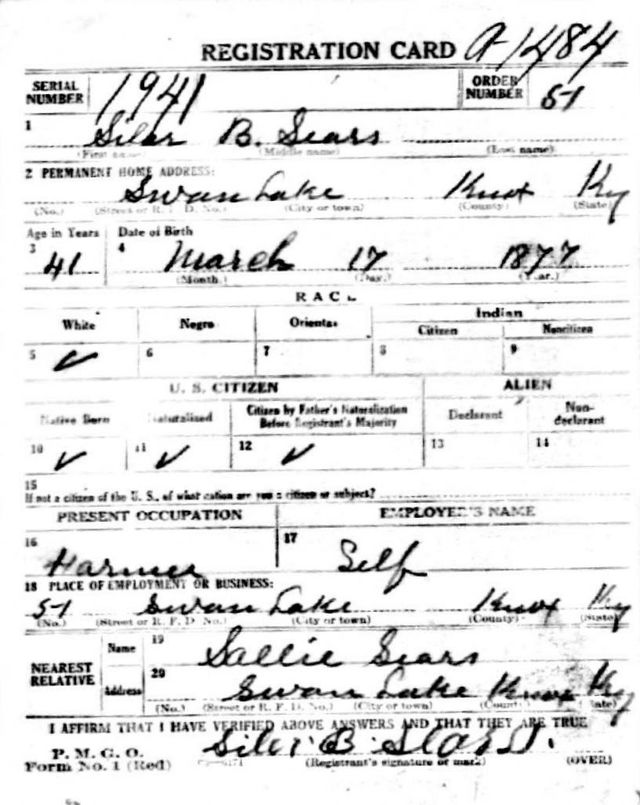 REGISTRATION CARD A-1484
SERIAL NUMBER 1941 ORDER NUMBER 51
1 Siler B. Sears
(First name) (Middle name) (Last name)
2 PERMANENT HOME ADDRESS:
Swan Lake Knox Ky
(No.) (Street or R. F. D. No.) (City or town) (County) (State)
Age in Years Date of Birth
3 41 4 March 17 1877
(Month.) (Day.) (Year.)
RACE
White Negro Oriental Indian
Citizen Noncitizen
5 ✓ 6 7 8 9
U. S. CITIZEN ALIEN
Native Born Naturalized Citizen by Father's Naturalization Before Registrant's Majority Declarant Non-declarant
10 ✓ 11 ✓ 12 ✓ 13 14
15
If not a citizen of the U. S., of what nation are you a citizen or subject?
PRESENT OCCUPATION EMPLOYER'S NAME
16 Farmer 17 Self
18 PLACE OF EMPLOYMENT OR BUSINESS:
51 Swan Lake Knox Ky
(No.) (Street or R. F. D. No.) (City or town) (County) (State)
NEAREST RELATIVE Name 19 Sallie Sears
Address 20 Swan Lake Knox Ky
(No.) (Street or R. F. D. No.) (City or town) (County) (State)
I AFFIRM THAT I HAVE VERIFIED ABOVE ANSWERS AND THAT THEY ARE TRUE
P. M. G. O. Siler B Sears.
Form No. 1 (Red) (Registrant's signature or mark) (OVER)